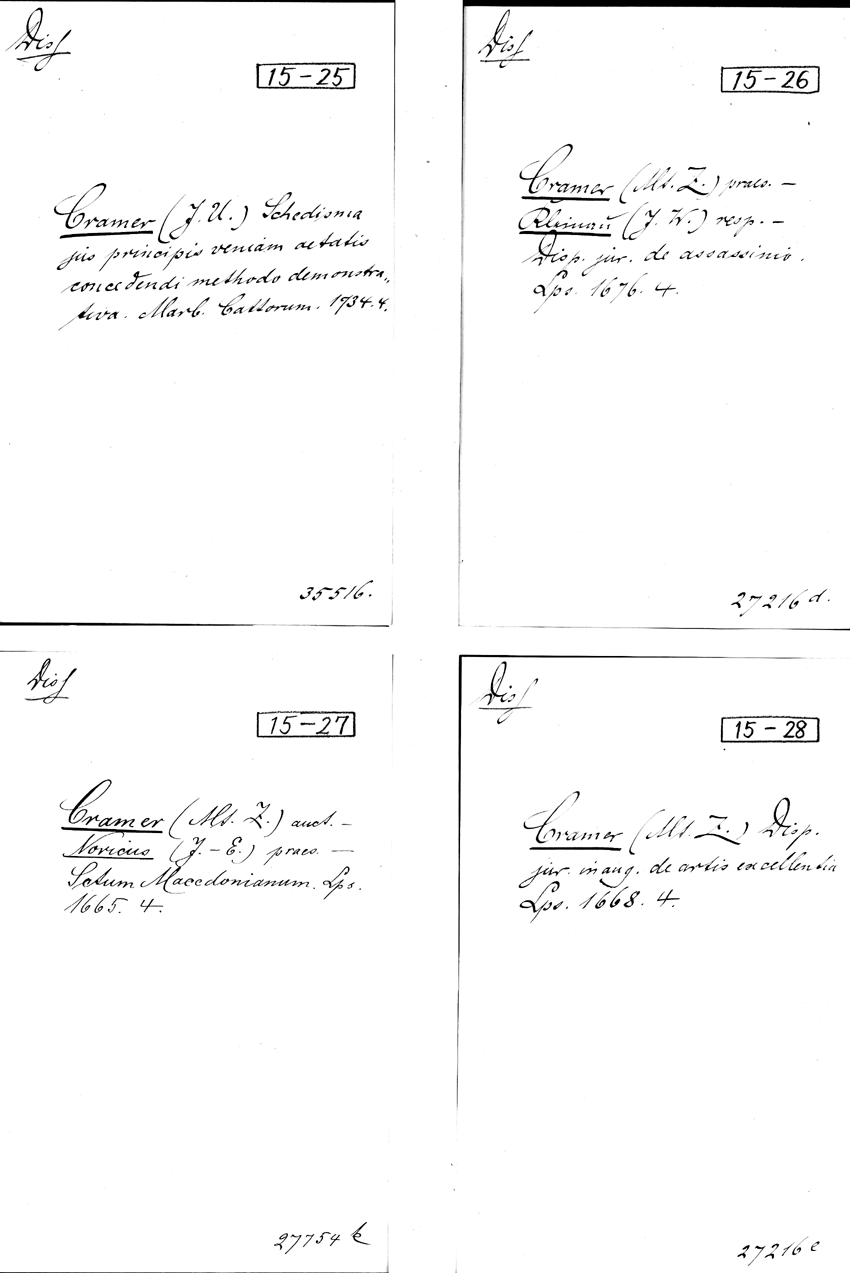 Diss
15-25
Cramer (J. U.) Schedisma
jus principis veniam aetatis
concedendi methodo demonstra„
tiva. Marb. Cattorum. 1734. 4.
35516.
Diss
15-26
Cramer (Mt. Z.) praes. —
Rleinau (J. W.) resp. —
Disp. jur. de assassinio.
Lps. 1676. 4.
27216 d.
Diss
15-27
Cramer (Mt. Z.) auct. —
Noricus (J.-E.) praes. —
Sctum Macedonianum. Lps.
1665. 4.
27754 k
Diss
15-28
Cramer (Mt. Z.) Disp.
jur. inaug. de artis excellentia
Lps. 1668. 4.
27216 e